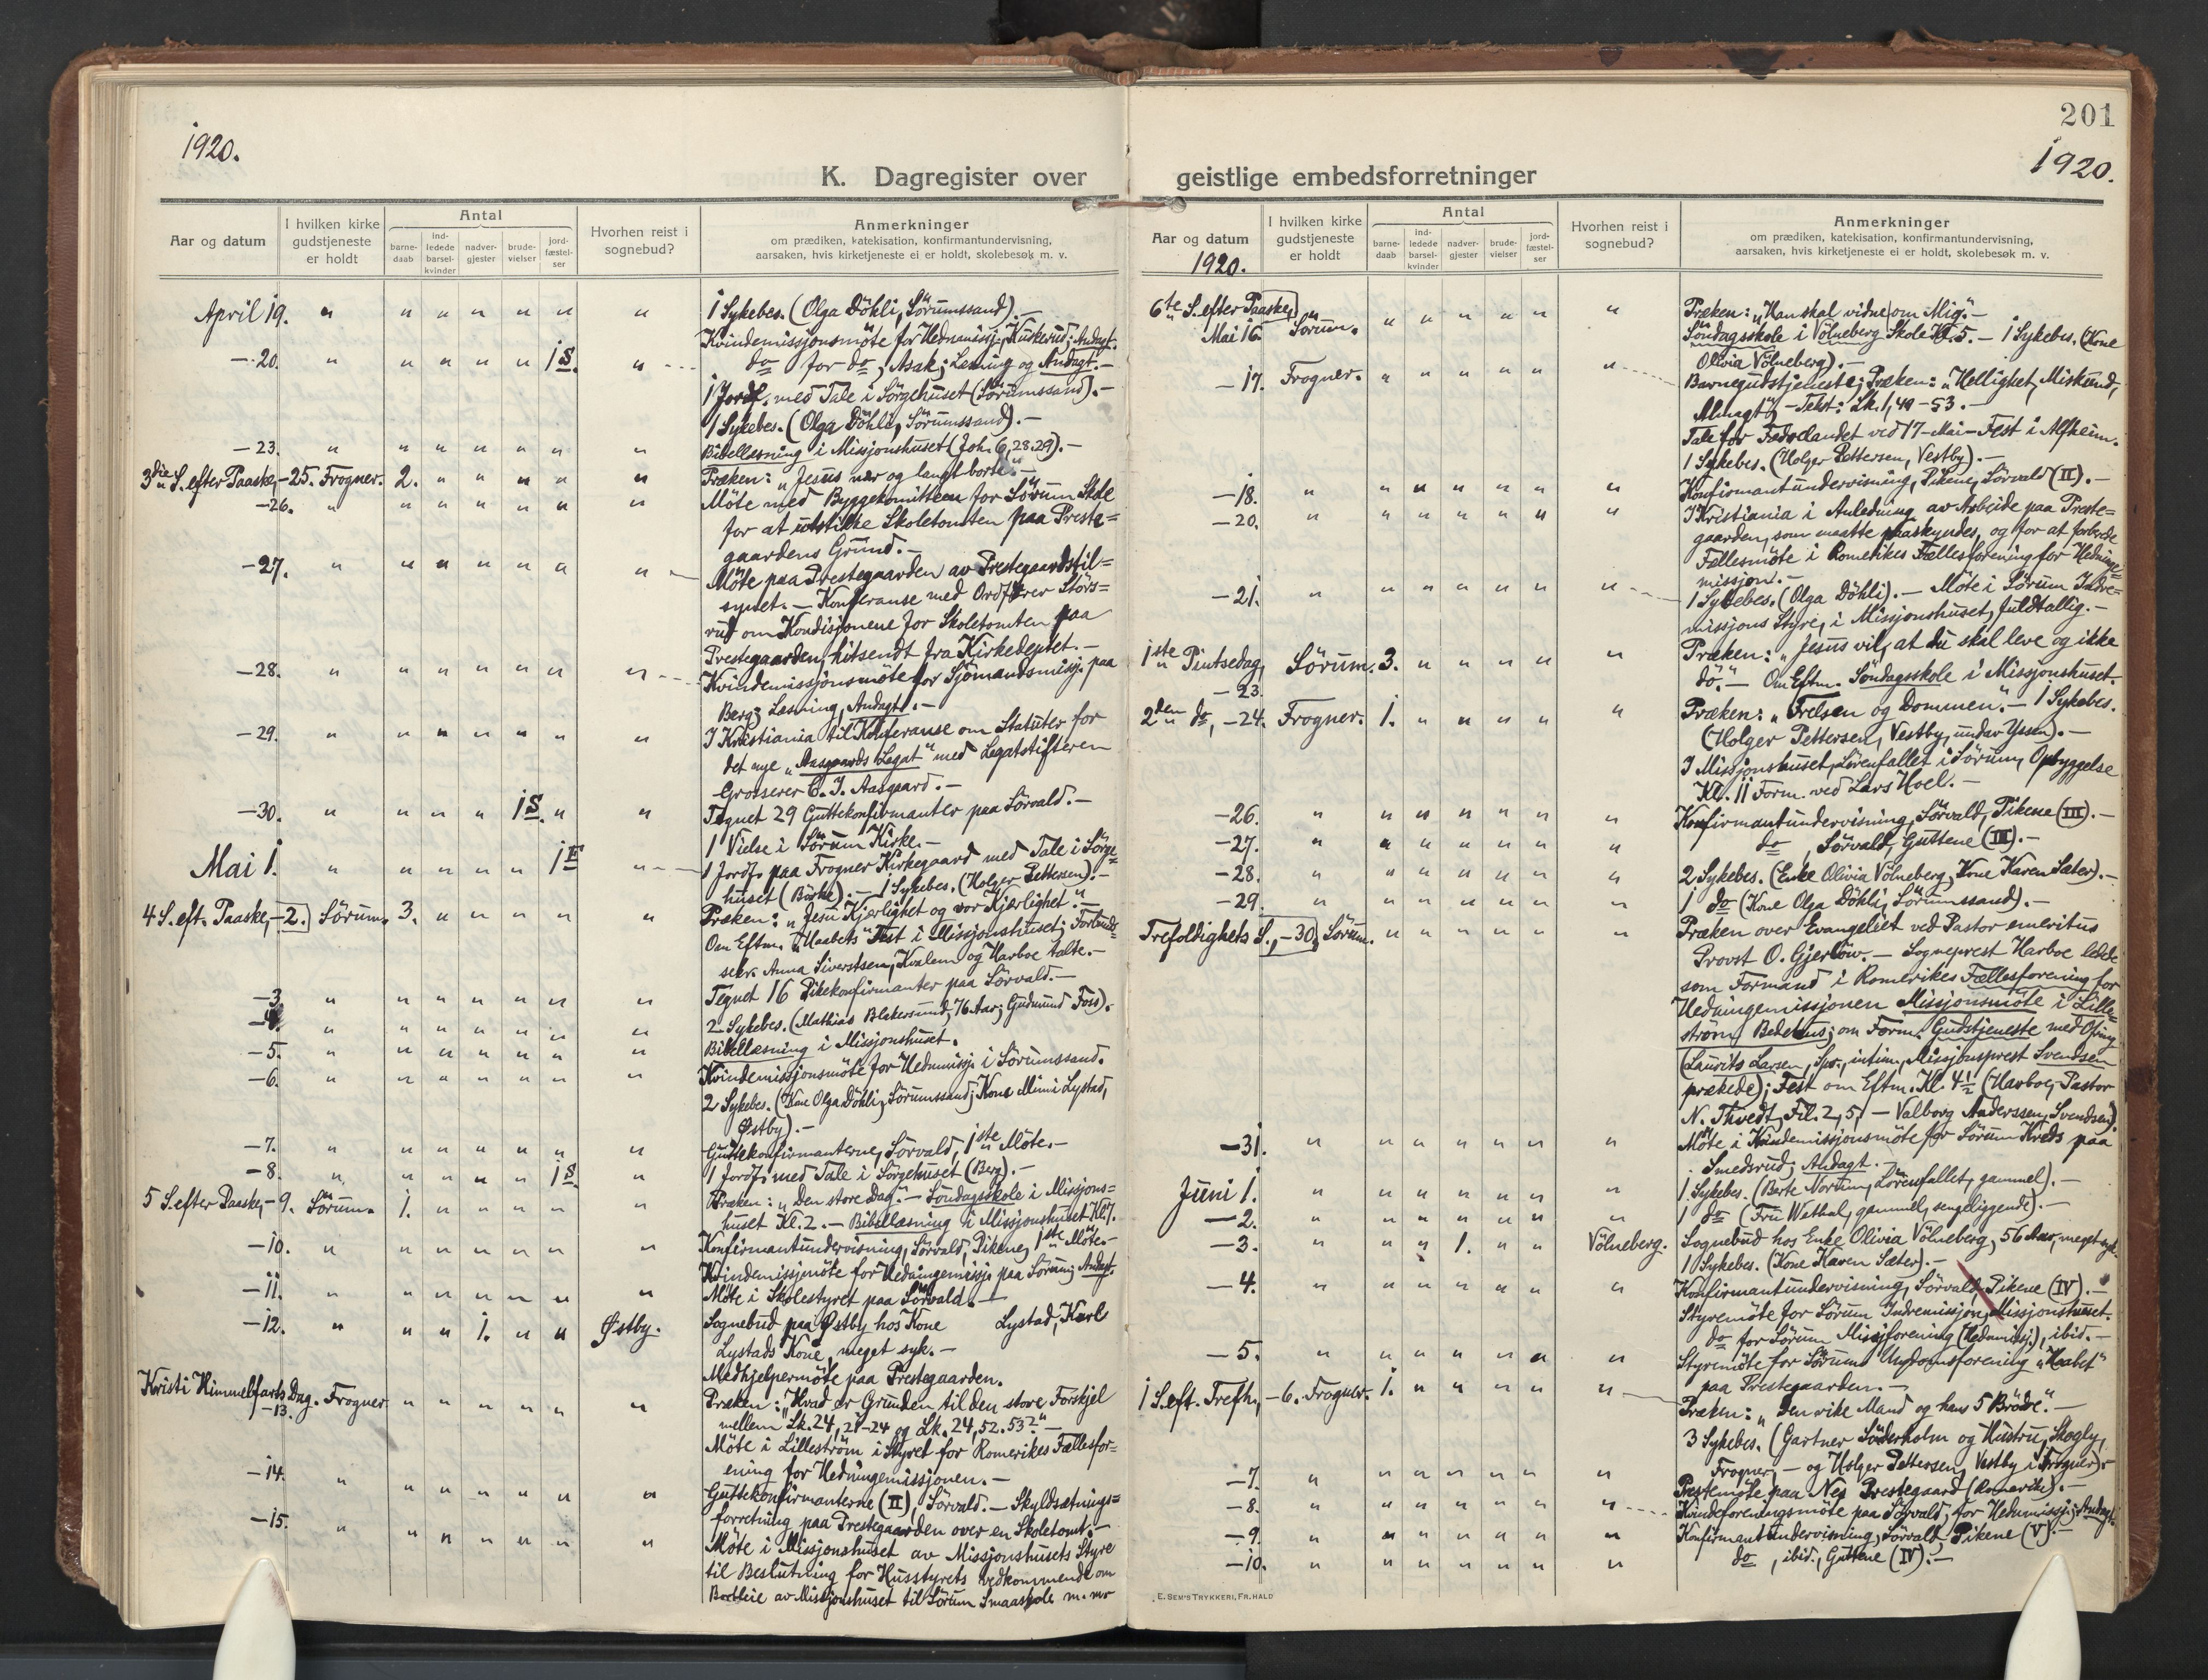 1920.
K. Dagregister over
Aar og datum
I hvilken kirke gudstjeneste er holdt
Antal
barne-daab
ind-ledede barsel-kvinder
nadver-gjester
brude-vielser
jord-fæstel-ser
Hvorhen reist i sognebud?
Anmerkninger
om prædiken, katekisation, konfirmantundervisning,
aarsaken, hvis kirketjeneste ei er holdt, skolebesøk m. v.
April 19. " " " " " " " 1 Sykebes. (Olga Döhli, Sörumssand).-
Kvindemissjonsmöte for Hednamissj., Kuskerud; Andagt.
-20. " " " " " 1 S. " do for do, Asak; Læsning og Andagt.-
1 Jordf. med Tale i Sörgehuset (Sörumssand).-
1 Sykebes. (Olga Döhli, Sörumssand).-
-23. " " " " " " " Bibellæsning i Missjonshuset (Joh. 6, 28.29).-
3die S. efter Paaske, -25. Frogner. 2. " " " " " Præken: "Jesus nær og langt borte".-
-26. " " " " " " " Möte med Byggekomitteen for Sörum Skole
for at utstikke Skoletomten paa Preste=
gaardens Grund.-
-27. " " " " " " " Möte paa Prestegaarden av Prestegaardstil=
synet. - Konferanse med Ordförer Störs=
rud om Kondisjonene for Skoletomten paa
Prestegaarden, hitsendt fra Kirkedeptet.-
-28. " " " " " " " Kvindemissjonsmöte for Sjömandsmissj. paa
Berg; Læsning, Andagt.-
-29. " " " " " " " I Kristiania til Konferanse om Statuter for
det nye "Aasgaards Legat" med Legatstifteren
Grosserer C. J. Aasgaard.-
-30. " " " " 1 S. " " Tegnet 29 Guttekonfirmanter paa Sörvald.-
1 Vielse i Sörum Kirke.-
Mai 1. " " " " " 1 F " 1 Jordf. paa Frogner Kirkegaard med Tale i Sörge=
huset (Börke).- 1 Sykebes. (Holger Pettersen).-
4 S. eft. Paaske, -2. Sörum. 3. " " " " " Præken: "Jesu Kjærlighet og vor Kjærlighet".-
Om Eftm. "Haabets" Fest i Missjonshuset; Forbunds=
sekr. Anna Siverstsen, Kvalem og Harboe talte.-
-3. " " " " " " " Tegnet 16 Pikekonfirmanter paa Sörvald.-
-4. " " " " " " " 2 Sykebes. (Mathias Blakersund, 76 Aar; Gudmund Foss).
-5. " " " " " " " Bibellæsning i Missjonshuset.
-6. " " " " " " " Kvindemissjonsmöte for Hednmissj. i Sörumssand.
2 Sykebes. (Kone Olga Döhli, Sörumssand; Kone Mimi Lystad,
Østby).-
-7. " " " " " " " Guttekonfirmanterne, Sörvald, 1ste Möte.-
-8. " " " " " 1 S. " 1 Jordf. med Tale i Sörgehuset (Berg).-
5 S. efter Paaske, -9. Sörum. 1. " " " " " Præken: "Den store Dag".- Söndagsskole i Missjons=
huset Kl. 2.- Bibellæsning i Missjonshuset Kl. 7.
-10. " " " " " " " Konfirmantundervisning, Sörvald, Pikene, 1ste Möte.-
Kvindemissjmöte for Hedningemissj. paa Sörum; Andagt.
-11. " " " " " " " Möte i Skolestyret paa Sörvald.-
-12. " " " 1. " " Østby. Sognebud paa Østby hos Kone Lystad, Karl
Lystads Kone, meget syk.-
Medhjelpermöte paa Prestegaarden.
Kristi Himmelfarts Dag. Frogner " " " " " " Præken: "Hvad er Grunden til den store Forskjel
-13. mellem Lk. 24, 21-24 og Lk. 24, 52.53?"-
Möte i Lilleström i Styret for Romerikes Fællesfor=
ening for Hedningemissjonen.-
-14. " " " " " " " Guttekonfirmanterne (II), Sörvald.- Skyldsætnings=
forretning paa Prestegaarden over en Skoletomt.-
-15. " " " " " " " Möte i Missjonshuset av Missjonshusets Styre
til Beslutning for Husstyrets vedkommende om
Bortleie av Missjonshuset til Sörum Smaaskole m. m.
201
1920.
geistlige embedsforretninger
Aar og datum
1920.
I hvilken kirke gudstjeneste er holdt
Antal
barne-daab
ind-ledede barsel-kvinder
nadver-gjester
brude-vielser
jord-fæstel-ser
Hvorhen reist i sognebud?
Anmerkninger
om prædiken, katekisation, konfirmantundervisning,
aarsaken, hvis kirketjeneste ei er holdt, skolebesøk m. v.
6te S. efter Paaske, Præken: "Han skal vidne om Mig".-
Mai 16. Sörum. " " " " " " Söndagsskole i Völneberg Skole Kl. 5.- 1 Sykebes. (Kone
Olivia Völneberg).-
-17. Frogner. " " " " " " Barnegudstjeneste; Præken: "Hellighet, Miskund,
Almagt".- Tekst: Lk. 1, 49-53.-
Tale for Fædrelandet ved 17-Mai-Fest i Alfheim.
1 Sykebes. (Holger Pettersen, Vestby).-
-18. " " " " " " " Konfirmantundervisning, Pikene, Sörvald (II).-
-20. " " " " " " " I Kristiania i Anledning av Arbeide paa Preste=
gaarden, som maatte paaskyndes, og for at forberede
Fællesmöte i Romerikes Fællesforening for Hedninge=
missjon.-
-21. " " " " " " " 1 Sykebes. (Olga Döhli).- Möte i Sörum Indre=
missjons Styre, i Missjonshuset, fuldtallig.-
1ste Pintsedag, Sörum. 3. " " " " " Præken: "Jesus vil, at du skal leve og ikke
-23. dö".- Om Eftm. Söndagsskole i Missjonshuset.
2den do, -24. Frogner. 1. " " " " " Præken: "Frelsen og Dommen".- 1 Sykebes.
(Holger Pettersen, Vestby, under Yssen).-
I Missjonshuset, Lörenfallet i Sörum, Opbyggelse
Kl. 11 Form. ved Lars Hoel.-
-26. " " " " " " " Konfirmantundervisning, Sörvald, Pikene (III).-
-27. " " " " " " " do, Sörvald, Guttene (III).-
-28. " " " " " " " 2 Sykebes. (Enke Olivia Völneberg, Kone Karen Sæter).-
-29. " " " " " " " 1 do (Kone Olga Döhli, Sörumssand).-
Trefoldighets S., -30. Sörum. " " " " " " Præken over Evangeliet ved Pastor emeritus
Provst O. Gjerlöw.- Sogneprest Harboe ledede
som Formand i Romerikes Fællesforening for
Hedningemissjonen Missjonsmöte i Lille=
ström Bedehus; om Form. Gudstjeneste med Ofring
(Laurits Larsen, Spr., intim., Missjonsprest Svendsen
prækede); Fest om Eftm. Kl. 4½ (Harboe, Pastor
N. Thvedt, Fil. 2, 5,- Valborg Anderssen, Svendsen).
-31. " " " " " " " Möte i Kvindemissjonsmöte for Sörum Kreds paa
Smedsrud; Andagt.-
Juni 1. " " " " " " " 1 Sykebes. (Berte Norum, Lörenfallet, gammel).-
-2. " " " " " " " 1 do (Fru Wethal, gammel, sengeliggende).-
-3. " " " 1. " " Völneberg. Sognebud hos Enke Olivia Völneberg, 56 Aar, meget syk.
1 Sykebes. (Kone Karen Sæter).-
-4. " " " " " " " Konfirmantundervisning, Sörvald, Pikene (IV).-
Styremöte for Sörum Indremissjon, Missjonshuset.
do for Sörum Missjforening (Hednmissj.), ibid.-
-5. " " " " " " " Styremöte for Sörums Ungdomsforening "Haabet"
paa Prestegaarden.-
1 S. eft. Trefh., -6. Frogner. 1. " " " " " Præken: "Den rike Mand og hans 5 Brödre".-
3 Sykebes. (Gartner Söderholm og Hustru, Skogly,
Frogner,- og Holger Pettersen, Vestby i Frogner).-
-7. " " " " " " " Prestemöte paa Nes Prestegaard (Romerike).-
-8. " " " " " " " Kvindeforeningsmöte paa Sörvald, for Hednmissj.; Andagt.
-9. " " " " " " " Konfirmantundervisning, Sörvald, Pikene (V).-
-10. " " " " " " " do, ibid., Guttene (IV).-
E. SEM'S TRYKKERI, FR.HALD